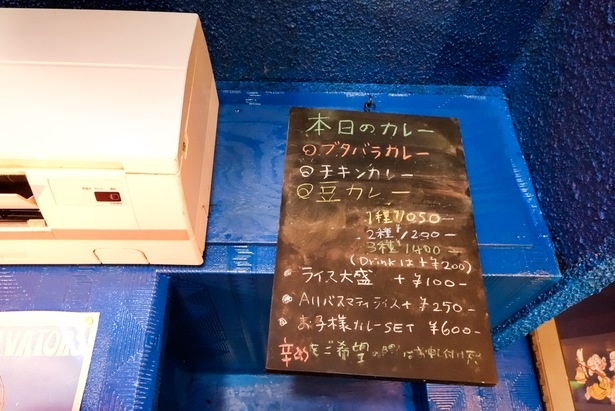 本日のカレー
@ブタバラカレー
@チキンカレー
@豆カレー
1種¥1050-
2種¥1200-
3種¥1400-
(Drinkは+¥200)
ライス大盛 +¥100-
Allバスマティライス+¥250-
お子様カレーSET ¥600-
辛みをご希望の際はお申し付け下さい
VATORS